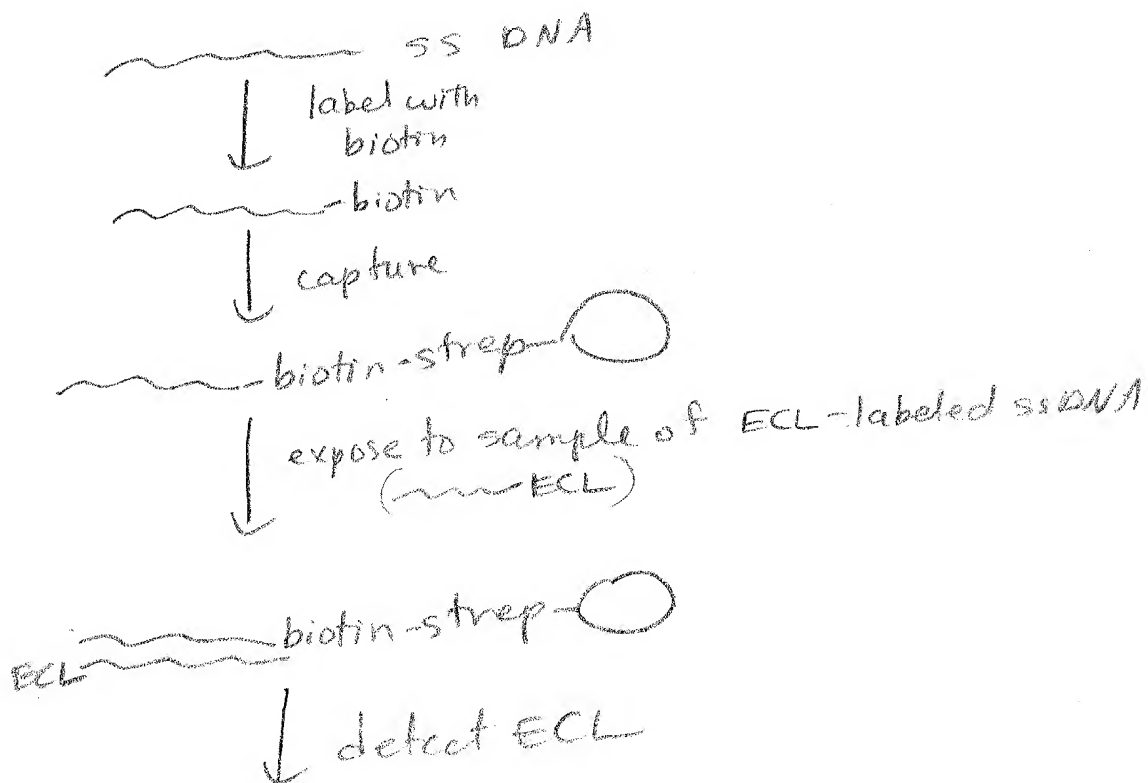 ss DNA
label with
biotin
-biotin
capture
-biotin-strep-
expose to sample of ECL-labeled ssDNA
(~~~ ECL)
biotin-strep-
ECL
detect ECL